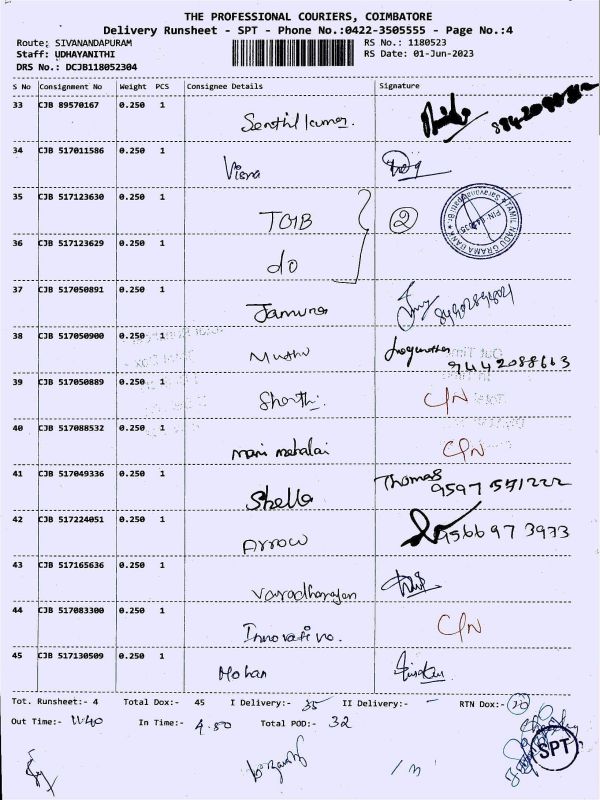 THE PROFESSIONAL COURIERS, COIMBATORE
Delivery Runsheet - SPT - Phone No.:0422-3505555 - Page No.:4
Route: SIVANANDAPURAM RS No.: 1180523
Staff: UDHAYANITHI RS Date: 01-Jun-2023
DRS No.: DCJB118052304
S No Consignment No Weight PCS Consignee Details Signature
33 CJB 89570167 0.250 1 Senthil kumar.
34 CJB 517011586 0.250 1
35 CJB 517123630 0.250 1 TGB 2
36 CJB 517123629 0.250 1 do
TAMIL NADU GRAMA BANK
37 CJB 517050891 0.250 1 Jamuna
38 CJB 517050900 0.250 1 Muthu Loganathan
9442088663
39 CJB 517050889 0.250 1 C/N
40 CJB 517088532 0.250 1 mani mekalai C/N
41 CJB 517049336 0.250 1 Shella Thomas
9597 571222
42 CJB 517224051 0.250 1 Arrow 9566973973
43 CJB 517165636 0.250 1 Varadharajan
44 CJB 517083300 0.250 1 C/N
45 CJB 517130509 0.250 1 Mohan
Tot. Runsheet:- 4 Total Dox:- 45 I Delivery:- 35 II Delivery:- - RTN Dox:- 10
Out Time:- 11.40 In Time:- 4.50 Total POD:- 32
SPT